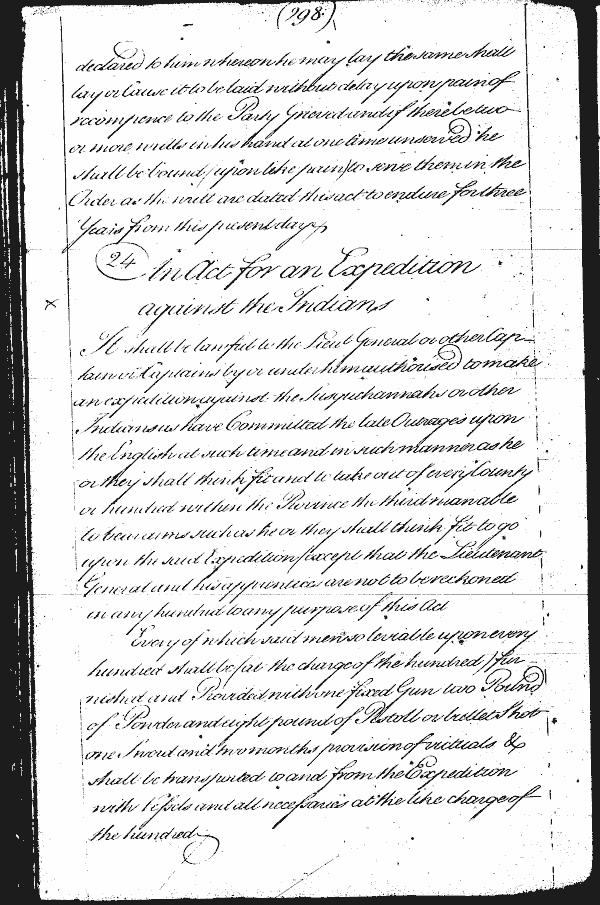 (298)
declared to him whereon he may lay the same shall
lay or Cause it to be laid without delay upon pain of
recompence to the Party Grieved and if there be two
or more writts in his hand at one time unserved he
shall be bound (upon like pain) to serve them in the
Order as the writt are dated this act to endure for three
Years from this present day
24 An Act for an Expedition
x
against the Indians
It shall be lawful to the Lieut General or other Cap-
tain or Captains by or under him authorised to make
an expedition against the Susquehannahs or other
Indians us have Committed the late Outrages upon
the English at such time and in such manner as he
or they shall think fit and to take out of every County
or hundred within the Province the third man able
to bear arms such as he or they shall think fit to go
upon the said Expedition (except that the Lieutenant
General and his apprentices are not to be reckoned
in any hundred to any purpose of this Act
Every of which said men so leviable upon every
hundred shall be (at the charge of the hundred) fur
nished and Provided with one fixed Gun two Pound
of Powder and eight pound of Pistoll or bullet Shot
one Sword and two months provision of victuals &
shall be transported to and from the Expedition
with Vessels and all necessaries at the like charge of
the hundred